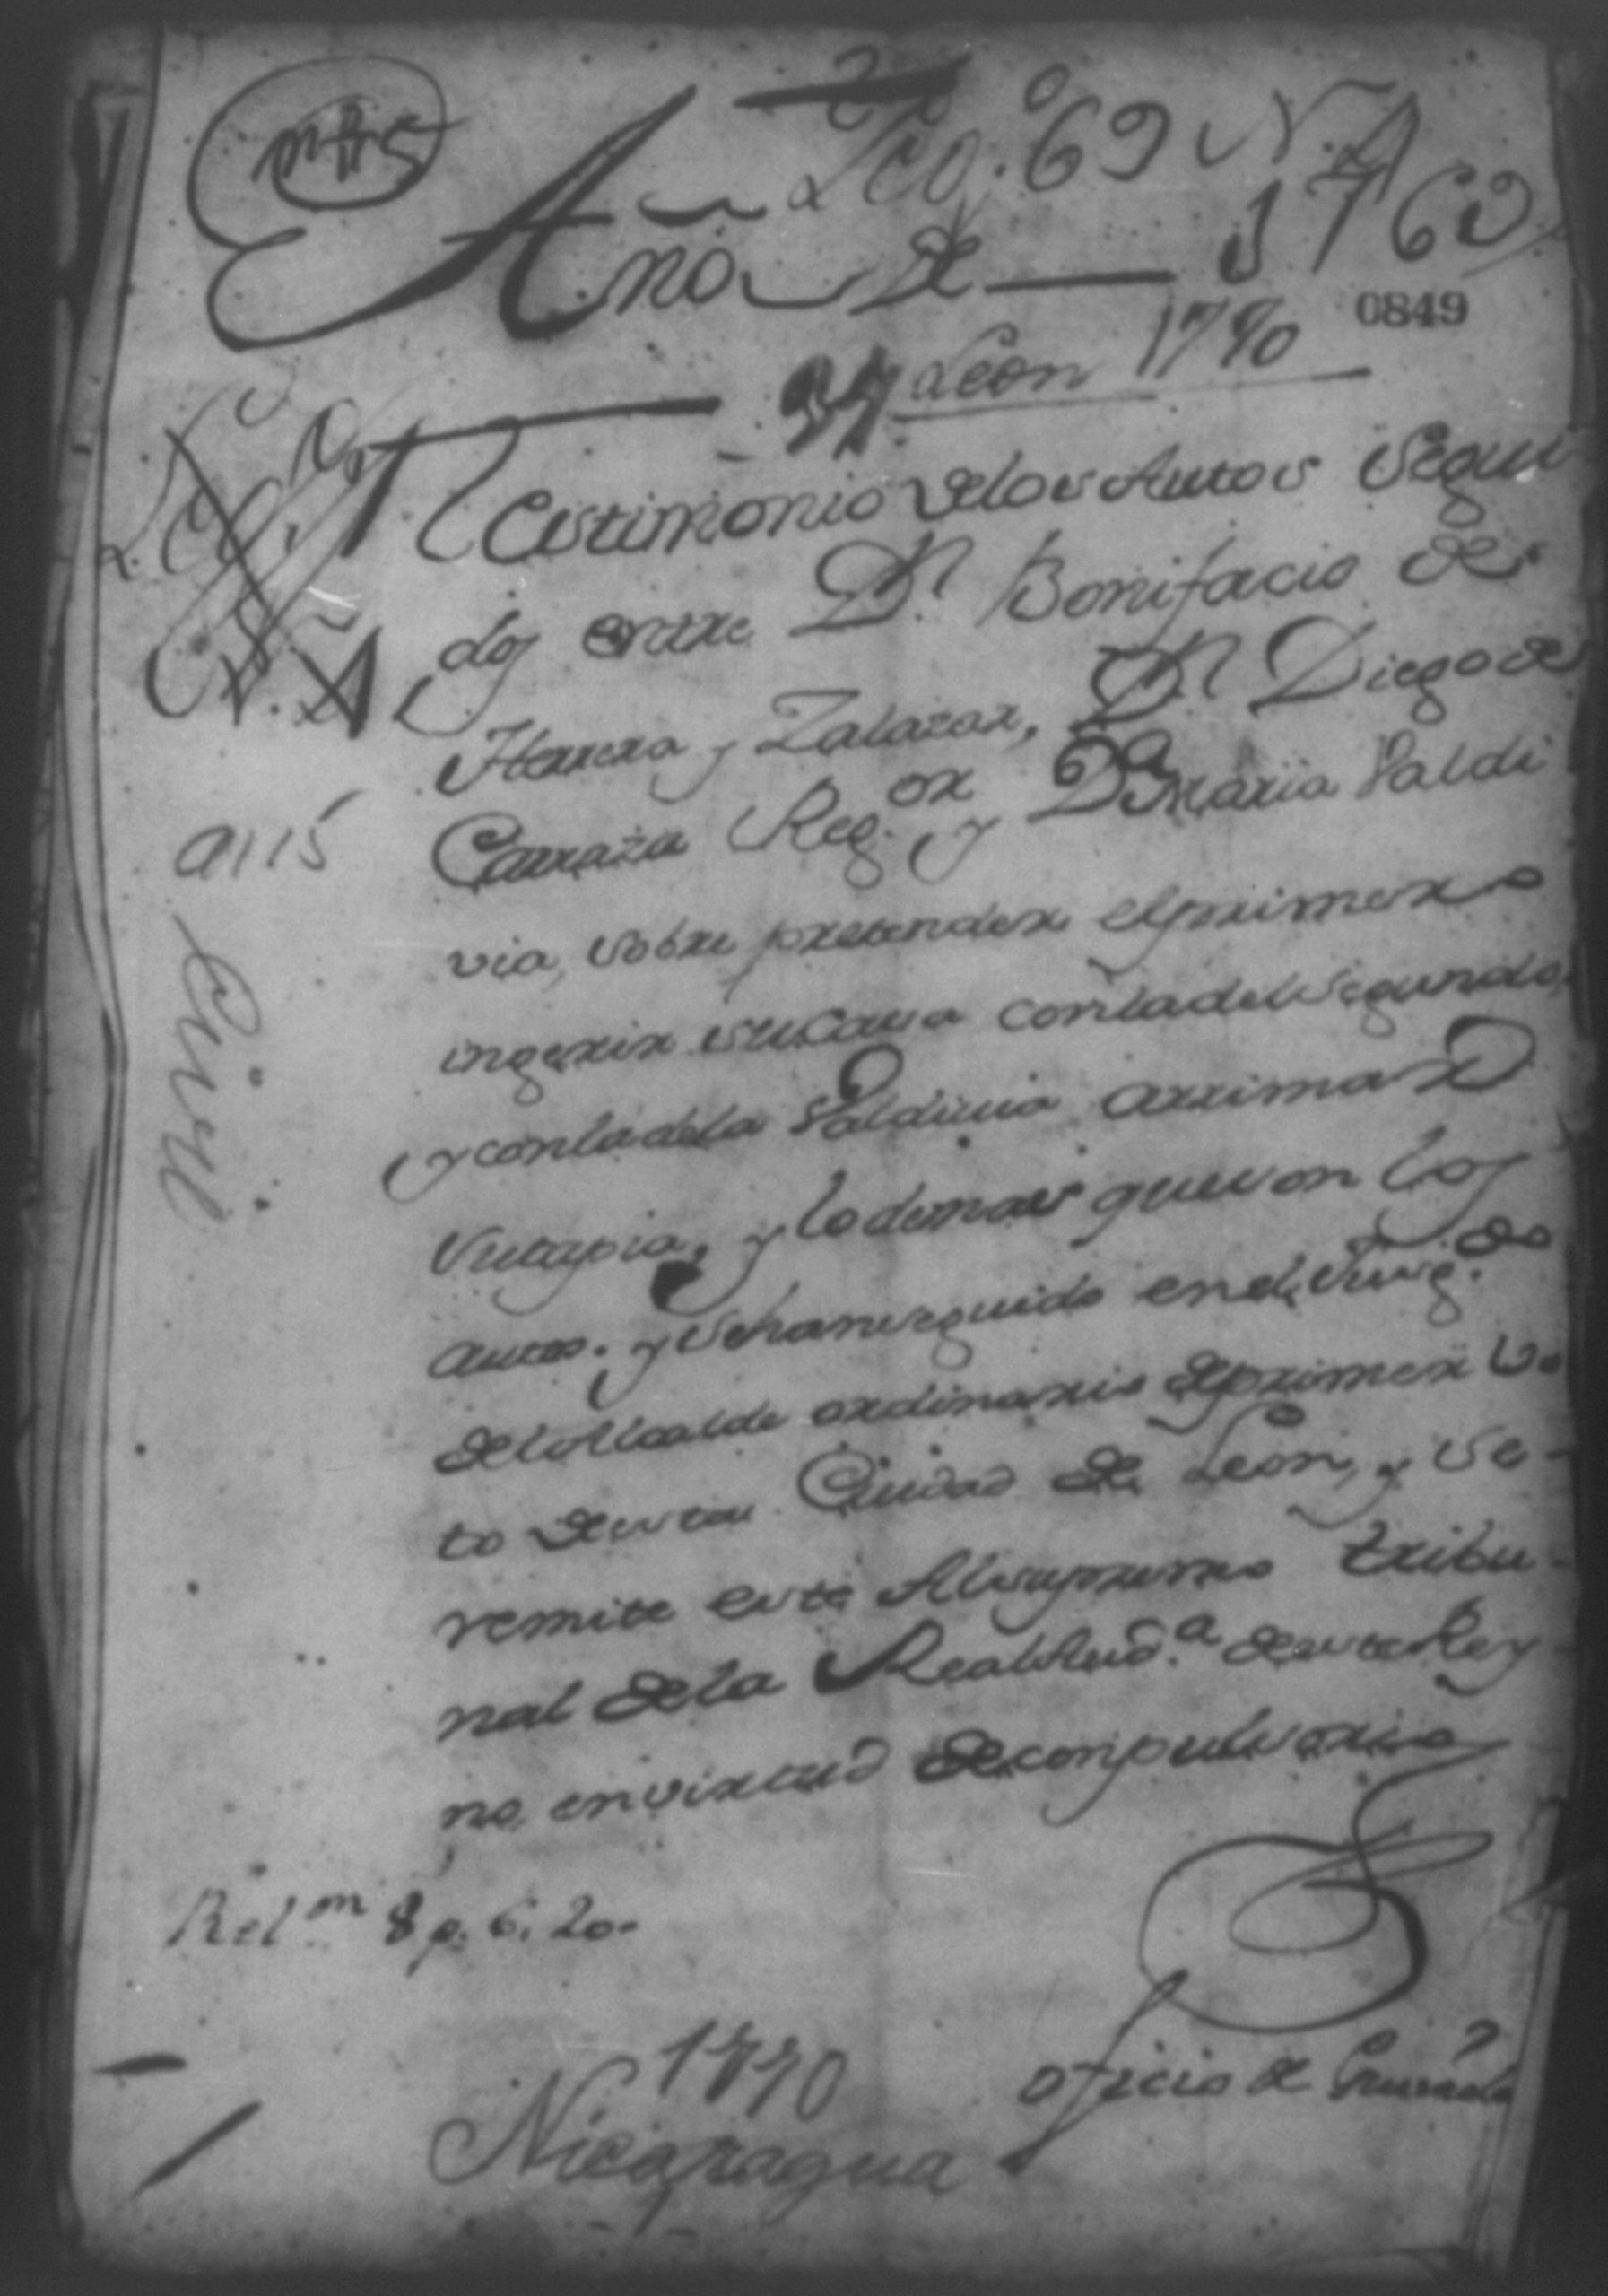 Leg. 69 N. A
Año de 1769
0849
Leon 1770
Testimonio delos Autos segui
dos entre Dn Bonifacio de
Herrera y Zalazar, Dn Diego de
Carraza Reg.or y Da Maria Valdi
via, sobre pretender el primero
ingerir su Casa conla del segundo,
y conla dela Valdivia arrimar
su tapia, y lo demas que son los
autos. y sehan seguido enel Juzg.do
del Alcalde ordinario de primer vo
to de esta Ciudad de Leon, y se
remite este Al supremo tribu
nal dela Real Aud.a de este Rey
no, en virtud de conpulsoria
A115
Civil
Rel.on 8 p. 6. 20.
1770
Nicaragua
oficio de